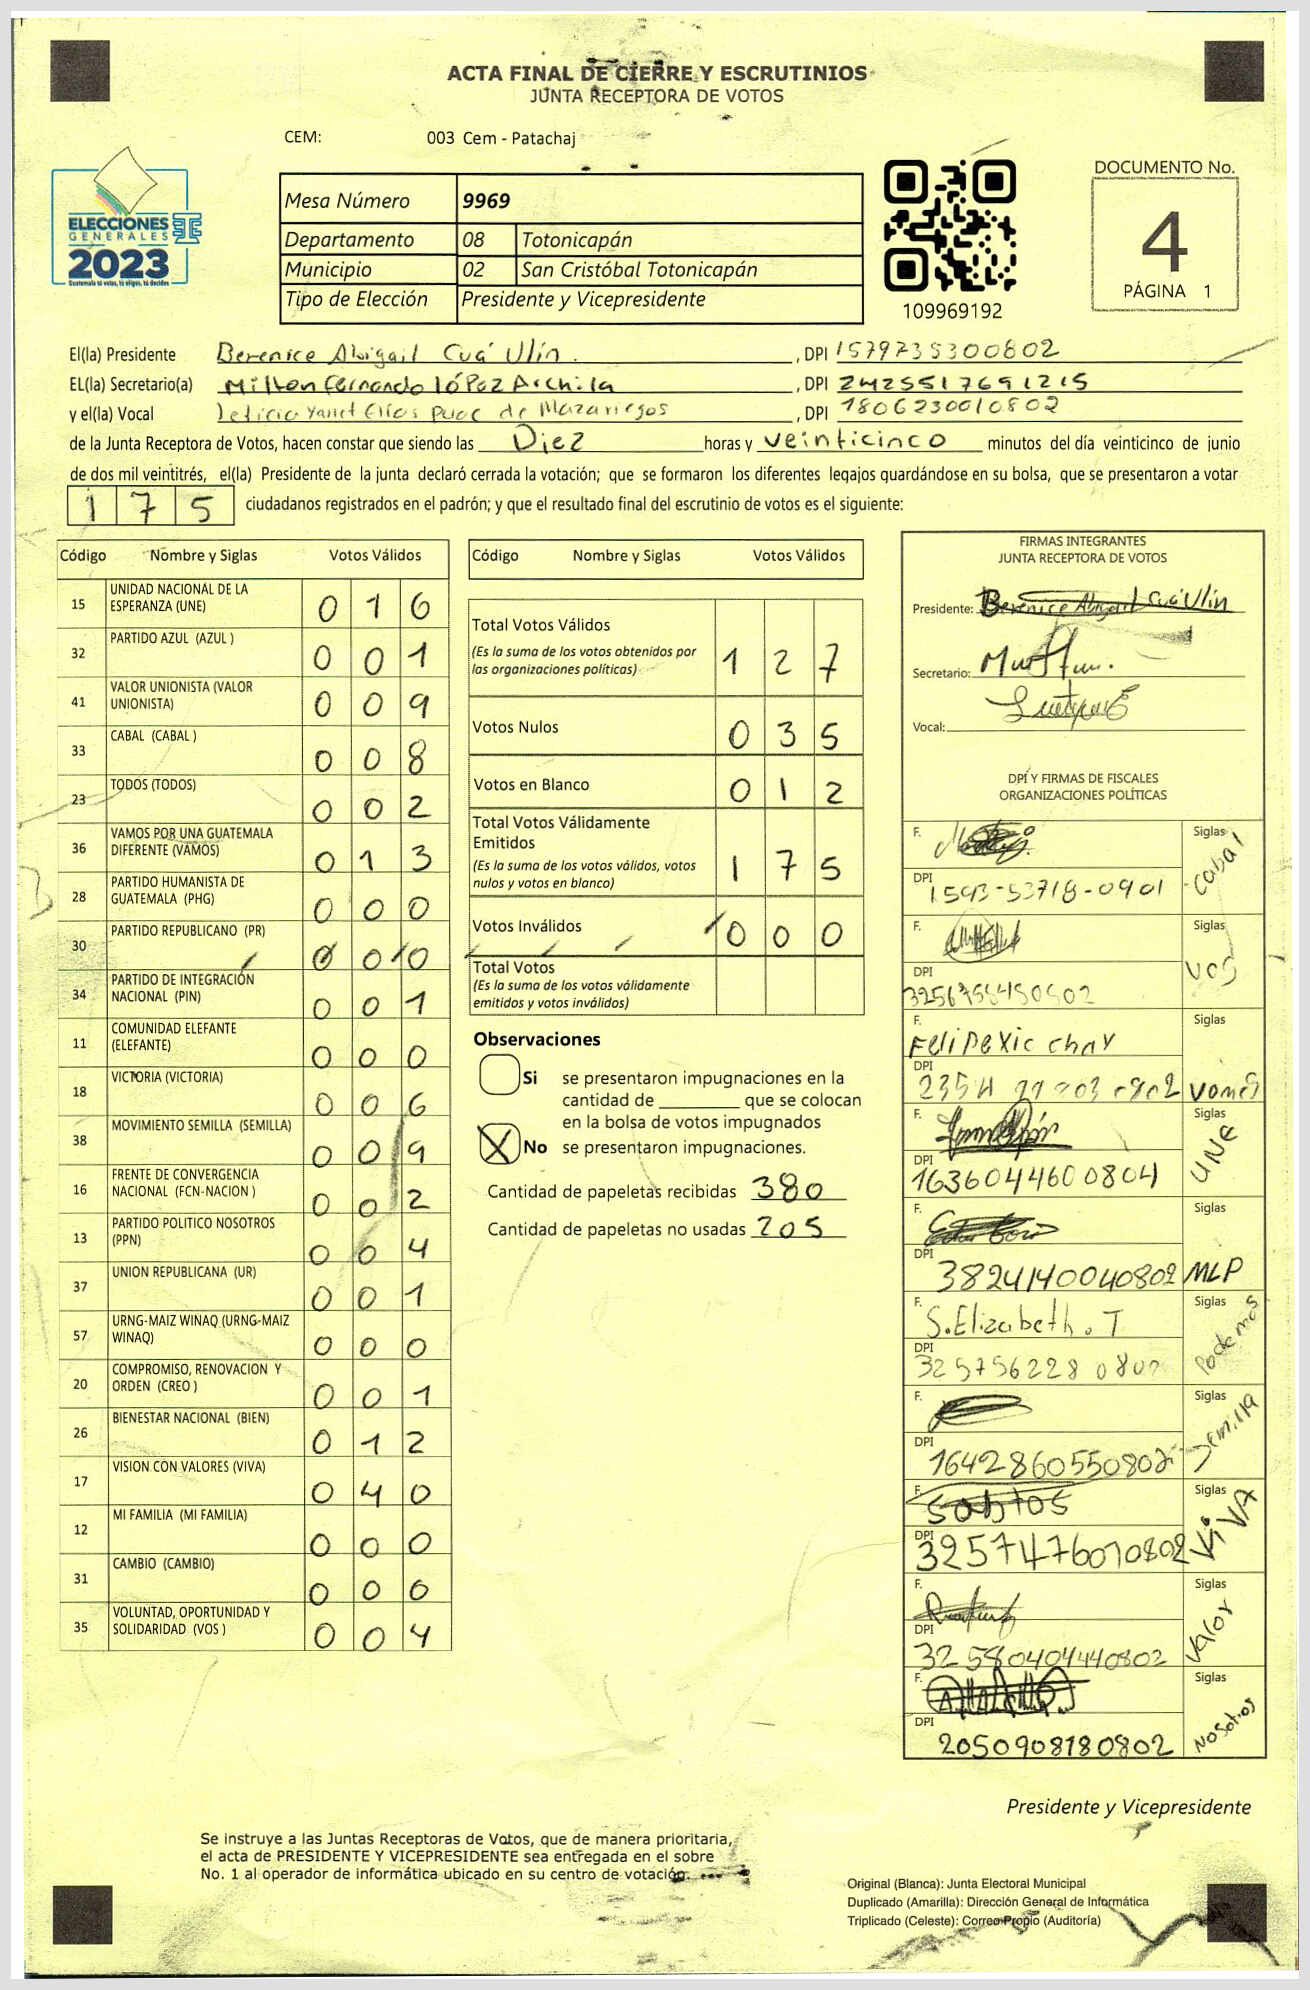 ACTA FINAL DE CIERRE Y ESCRUTINIOS
JUNTA RECEPTORA DE VOTOS
CEM: 003 Cem - Patachaj
ELECCIONES
GENERALES
2023
Guatemala tú votas, tú eliges, tú decides
Mesa Número 9969
Departamento 08 Totonicapán
Municipio 02 San Cristóbal Totonicapán
Tipo de Elección Presidente y Vicepresidente
109969192
DOCUMENTO No.
4
PÁGINA 1
El(la) Presidente Berenice Abigail Cuá Ulín. , DPI 1579735300802
EL(la) Secretario(a) Milton Fernando lóPez Archila , DPI 2425517691215
y el(la) Vocal Leticia Yanet Elías Puac de Mazariegos , DPI 1806230010802
de la Junta Receptora de Votos, hacen constar que siendo las Diez horas y veinticinco minutos del día veinticinco de junio
de dos mil veintitrés, el(la) Presidente de la junta declaró cerrada la votación; que se formaron los diferentes legajos quardándose en su bolsa, que se presentaron a votar
175 ciudadanos registrados en el padrón; y que el resultado final del escrutinio de votos es el siguiente:
Código Nombre y Siglas Votos Válidos
15 UNIDAD NACIONAL DE LA
ESPERANZA (UNE) 016
32 PARTIDO AZUL (AZUL ) 001
41 VALOR UNIONISTA (VALOR
UNIONISTA) 009
33 CABAL (CABAL ) 008
23 TODOS (TODOS) 002
36 VAMOS POR UNA GUATEMALA
DIFERENTE (VAMOS) 013
28 PARTIDO HUMANISTA DE
GUATEMALA (PHG) 000
30 PARTIDO REPUBLICANO (PR) 000
34 PARTIDO DE INTEGRACIÓN
NACIONAL (PIN) 001
11 COMUNIDAD ELEFANTE
(ELEFANTE) 000
18 VICTORIA (VICTORIA) 006
38 MOVIMIENTO SEMILLA (SEMILLA) 009
16 FRENTE DE CONVERGENCIA
NACIONAL (FCN-NACION ) 002
13 PARTIDO POLITICO NOSOTROS
(PPN) 004
37 UNION REPUBLICANA (UR) 001
57 URNG-MAIZ WINAQ (URNG-MAIZ
WINAQ) 000
20 COMPROMISO, RENOVACION Y
ORDEN (CREO ) 001
26 BIENESTAR NACIONAL (BIEN) 012
17 VISION CON VALORES (VIVA) 040
12 MI FAMILIA (MI FAMILIA) 000
31 CAMBIO (CAMBIO) 000
35 VOLUNTAD, OPORTUNIDAD Y
SOLIDARIDAD (VOS ) 004
Código Nombre y Siglas Votos Válidos
Total Votos Válidos
(Es la suma de los votos obtenidos por
las organizaciones políticas) 127
Votos Nulos 035
Votos en Blanco 012
Total Votos Válidamente
Emitidos
(Es la suma de los votos válidos, votos
nulos y votos en blanco) 175
Votos Inválidos 000
Total Votos
(Es la suma de los votos válidamente
emitidos y votos inválidos)
Observaciones
Si se presentaron impugnaciones en la
cantidad de ________ que se colocan
en la bolsa de votos impugnados
X No se presentaron impugnaciones.
Cantidad de papeletas recibidas 380
Cantidad de papeletas no usadas 205
FIRMAS INTEGRANTES
JUNTA RECEPTORA DE VOTOS
Presidente: Berenice Abigail Cuá Ulín
Secretario:
Vocal:
DPI Y FIRMAS DE FISCALES
ORGANIZACIONES POLÍTICAS
F. Siglas Cabal
DPI 1593-53718-0901
F. Siglas VOS
DPI
F. Felipe Xic Chay Siglas Vamos
DPI
F. Siglas UNE
DPI 1636044600804
F. Siglas MLP
DPI 3824140040802
F. S.Elizabeth.T Siglas Podemos
DPI 3257562280802
F. Siglas Semilla
DPI 1642860550802
F. Santos Siglas ViVA
DPI 3257476070802
F. Siglas Valor
DPI 3258040440802
F. Siglas Nosotros
DPI 2050908180802
Presidente y Vicepresidente
Se instruye a las Juntas Receptoras de Votos, que de manera prioritaria,
el acta de PRESIDENTE Y VICEPRESIDENTE sea entregada en el sobre
No. 1 al operador de informática ubicado en su centro de votación.
Original (Blanca): Junta Electoral Municipal
Duplicado (Amarilla): Dirección General de Informática
Triplicado (Celeste): Correo Propio (Auditoría)